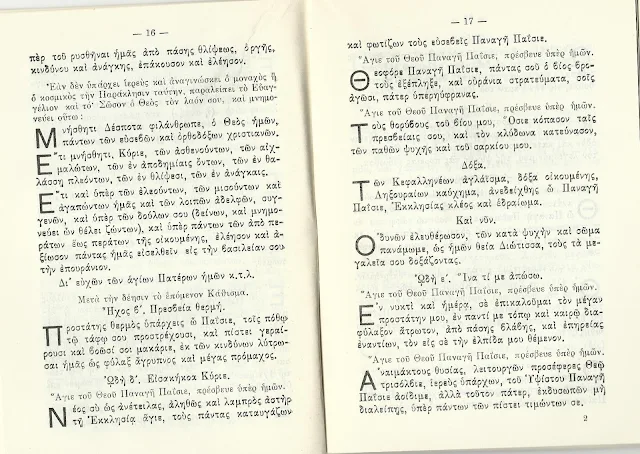 — 16 —
πὲρ τοῦ ρυσθῆναι ἡμᾶς ἀπὸ πάσης θλίψεως, ὀργῆς,
κινδύνου καὶ ἀνάγκης, ἐπάκουσον καὶ ἐλέησον.
Ἐὰν δὲν ὑπάρχει ἱερεὺς καὶ ἀναγινώσκει ὁ μοναχὸς ἢ
ὁ κοσμικὸς τὴν Παράκλησιν ταύτην, παραλείπει τὸ Εὐαγ-
γέλιον καὶ τὸ Σῶσον ὁ Θεὸς τὸν λαόν σου, καὶ μνημο-
νεύει οὕτω:
Μνήσθητι Δέσποτα φιλάνθρωπε, ὁ Θεὸς ἡμῶν,
πάντων τῶν εὐσεβῶν καὶ ὀρθοδόξων χριστιανῶν.
Ἔτι μνήσθητι, Κύριε, τῶν ἀσθενούντων, τῶν αἰχ-
μαλώτων, τῶν ἐν ἀποδημίαις ὄντων, τῶν ἐν θα-
λάσσῃ πλεόντων, τῶν ἐν θλίψεσι, τῶν ἐν ἀνάγκαις.
Ἔτι καὶ ὑπὲρ τῶν ἐλεούντων, τῶν μισούντων καὶ
ἀγαπώντων ἡμᾶς καὶ τῶν λοιπῶν ἀδελφῶν, συγ-
γενῶν, καὶ ὑπὲρ τῶν δούλων σου (δεῖνων, καὶ μνημο-
νεύει ὧν θέλει ζώντων), καὶ ὑπὲρ πάντων τῶν ἀπὸ πε-
ράτων ἕως περάτων τῆς οἰκουμένης, ἐλέησον καὶ ἀ-
ξίωσον πάντας ἡμᾶς εἰσελθεῖν εἰς τὴν βασιλείαν σου
τὴν ἐπουράνιον.
Δι' εὐχῶν τῶν ἁγίων Πατέρων ἡμῶν κ.τ.λ.
Μετὰ τὴν δέησιν τὸ ἑπόμενον Κάθισμα.
Ἦχος β΄. Πρεσβεία θερμή.
Προστάτης θερμὸς ὑπάρχεις ὦ Παΐσιε, τοῖς πόθῳ
τῷ τάφῳ σου προστρέχουσι, καὶ πίστει γεραί-
ρουσι καὶ βοῶσί σοι μακάριε, ἐκ τῶν κινδύνων λύτρω-
σαι ἡμᾶς ὡς φύλαξ ἄγρυπνος καὶ μέγας πρόμαχος.
ᾨδὴ δ΄. Εἰσακήκοα Κύριε.
Ἅγιε τοῦ Θεοῦ Παναγῆ Παΐσιε, πρέσβευε ὑπὲρ ἡμῶν.
Νέος σὺ ὡς ἀνέτειλας, ἀληθῶς καὶ λαμπρὸς ἀστὴρ
τῇ Ἐκκλησίᾳ ἅγιε, τοὺς πάντας καταυγάζων
— 17 —
καὶ φωτίζων τοὺς εὐσεβεῖς Παναγῆ Παΐσιε.
Ἅγιε τοῦ Θεοῦ Παναγῆ Παΐσιε, πρέσβευε ὑπὲρ ἡμῶν.
Θεοφόρε Παναγῆ Παΐσιε, πάντας σοῦ ὁ βίος βρο-
τοὺς ἐξέπληξε, καὶ οὐράνια στρατεύματα, σοῖς
ἀγῶσι, πάτερ ὑπερηύφρανας.
Ἅγιε τοῦ Θεοῦ Παναγῆ Παΐσιε, πρέσβευε ὑπὲρ ἡμῶν.
Τοὺς θορύβους τοῦ βίου μου, Ὅσιε κόπασον ταῖς
πρεσβείαις σου, καὶ τὸν κλύδωνα κατεύνασον,
τῶν παθῶν ψυχῆς καὶ τοῦ σαρκίου μου.
Δόξα.
Τῶν Κεφαλληνέων ἀγλάϊσμα, δόξα οἰκουμένης,
Ληξουραίων καύχημα, ἀνεδείχθης ὦ Παναγῆ
Παΐσιε, Ἐκκλησίας κλέος καὶ ἑδραίωμα.
Καὶ νῦν.
Ὀδυνῶν ἐλευθέρωσον, τῶν κατὰ ψυχὴν καὶ σῶμα
πανάμωμε, ὡς ἡμῶν θεία Διώτισσα, τοὺς τὰ με-
γαλεῖα σου δοξάζοντας.
ᾨδὴ ε΄. Ἵνα τί με ἀπώσω.
Ἅγιε τοῦ Θεοῦ Παναγῆ Παΐσιε, πρέσβευε ὑπὲρ ἡμῶν.
Ἐν νυκτὶ καὶ ἡμέρᾳ, σὲ ἐπικαλοῦμαι τὸν μέγαν
προστάτην μου, ἐν παντί με τόπῳ καὶ καιρῷ δια-
φύλαξον ἄτρωτον, ἀπὸ πάσης βλάβης, καὶ ἐπηρείας
ἐναντίον, τὸν εἰς σὲ τὴν ἐλπίδα μου θέμενον.
Ἅγιε τοῦ Θεοῦ Παναγῆ Παΐσιε, πρέσβευε ὑπὲρ ἡμῶν.
Ἀναιμάκτους θυσίας, λειτουργῶν προσέφερες Θεῷ
τρισόλβιε, ἱερεὺς ὑπάρχων, τοῦ Ὑψίστου Παναγῆ
Παΐσιε ἀοίδιμε, ἀλλὰ τοῦτον πάτερ, ἐκδυσωπῶν μὴ
διαλείπῃς, ὑπὲρ πάντων τῶν πίστει τιμώντων σε.
2